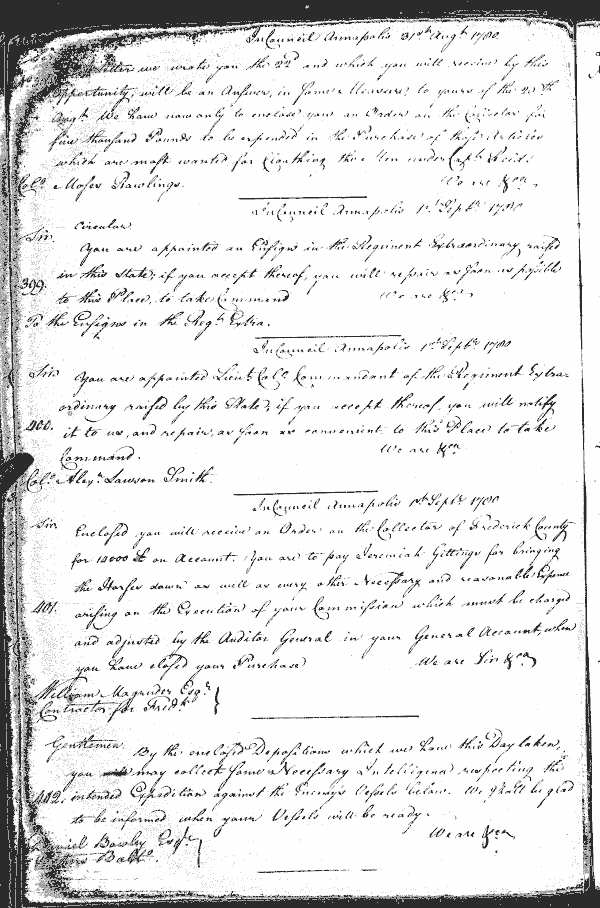 In Council Annapolis 31st Augt. 1780
Letter we wrote you the 22d and which you will receive by this
Opportunity, will be an Answer, in some Measure, to yours of the 20th
Augt. We have now only to enclose you an Order on the Collector for
five thousand Pounds to be expended in the Purchase of those Articles
which are most wanted for Cloathing the Men under Capt.
We are &ca.
Colo. Moses Rawlings.
In Council Annapolis 1st Septr. 1780
Circular
Sir.
You are appointed an Ensign in the Regiment Extraordinary raised
399. in this State; if you accept thereof, you will repair as soon as possible
to this Place, to take Command We are &ca.
To the Ensigns in the Regt. Extra.
In Council Annapolis 1st Septr. 1780
Sir.
You are appointed Lieut. Colo. Commandant of the Regiment Extra-
ordinary raised by this State; if you accept thereof, you will notify
400. it to us, and repair, as soon as convenient to this Place to take
Command. We are &ca
Colo. Alexr. Lawson Smith.
In Council Annapolis 1st Septr. 1780
Sir
Enclosed you will receive an Order on the Collector of Frederick County
for 14000 £ on Account. You are to pay Jeremiah Gittings for bringing
the Horses down as well as every other Necessary and reasonable Expence
401. arising on the Execution of your Commission which must be charged
and adjusted by the Auditor General in your General Account, when
you have closed your Purchase We are Sir &ca
William Magruder Esqr.
Contractor for Fredk.
Gentlemen. By the enclosed Depositions which we have this Day taken,
you may collect some Necessary Intelligence respecting the
402. intended Expedition against the Enemys Vessels below. We shall be glad
to be informed when your Vessels will be ready.
We are &ca
Daniel Bowley Esqr.
Balto.